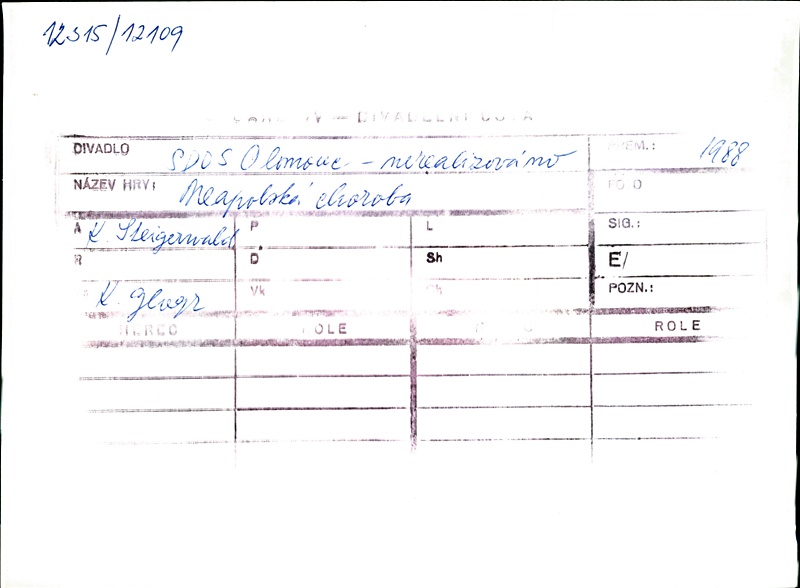 12315/12109
DIVADLO SDOS Olomouc - nerealizováno PREM.: 1988
NÁZEV HRY: Neapolská choroba FOTO
A K. Steigerwald P L SIG.:
R D Sh E/
K. Glogr Vk Ch POZN.:
HEREC ROLE ROLE